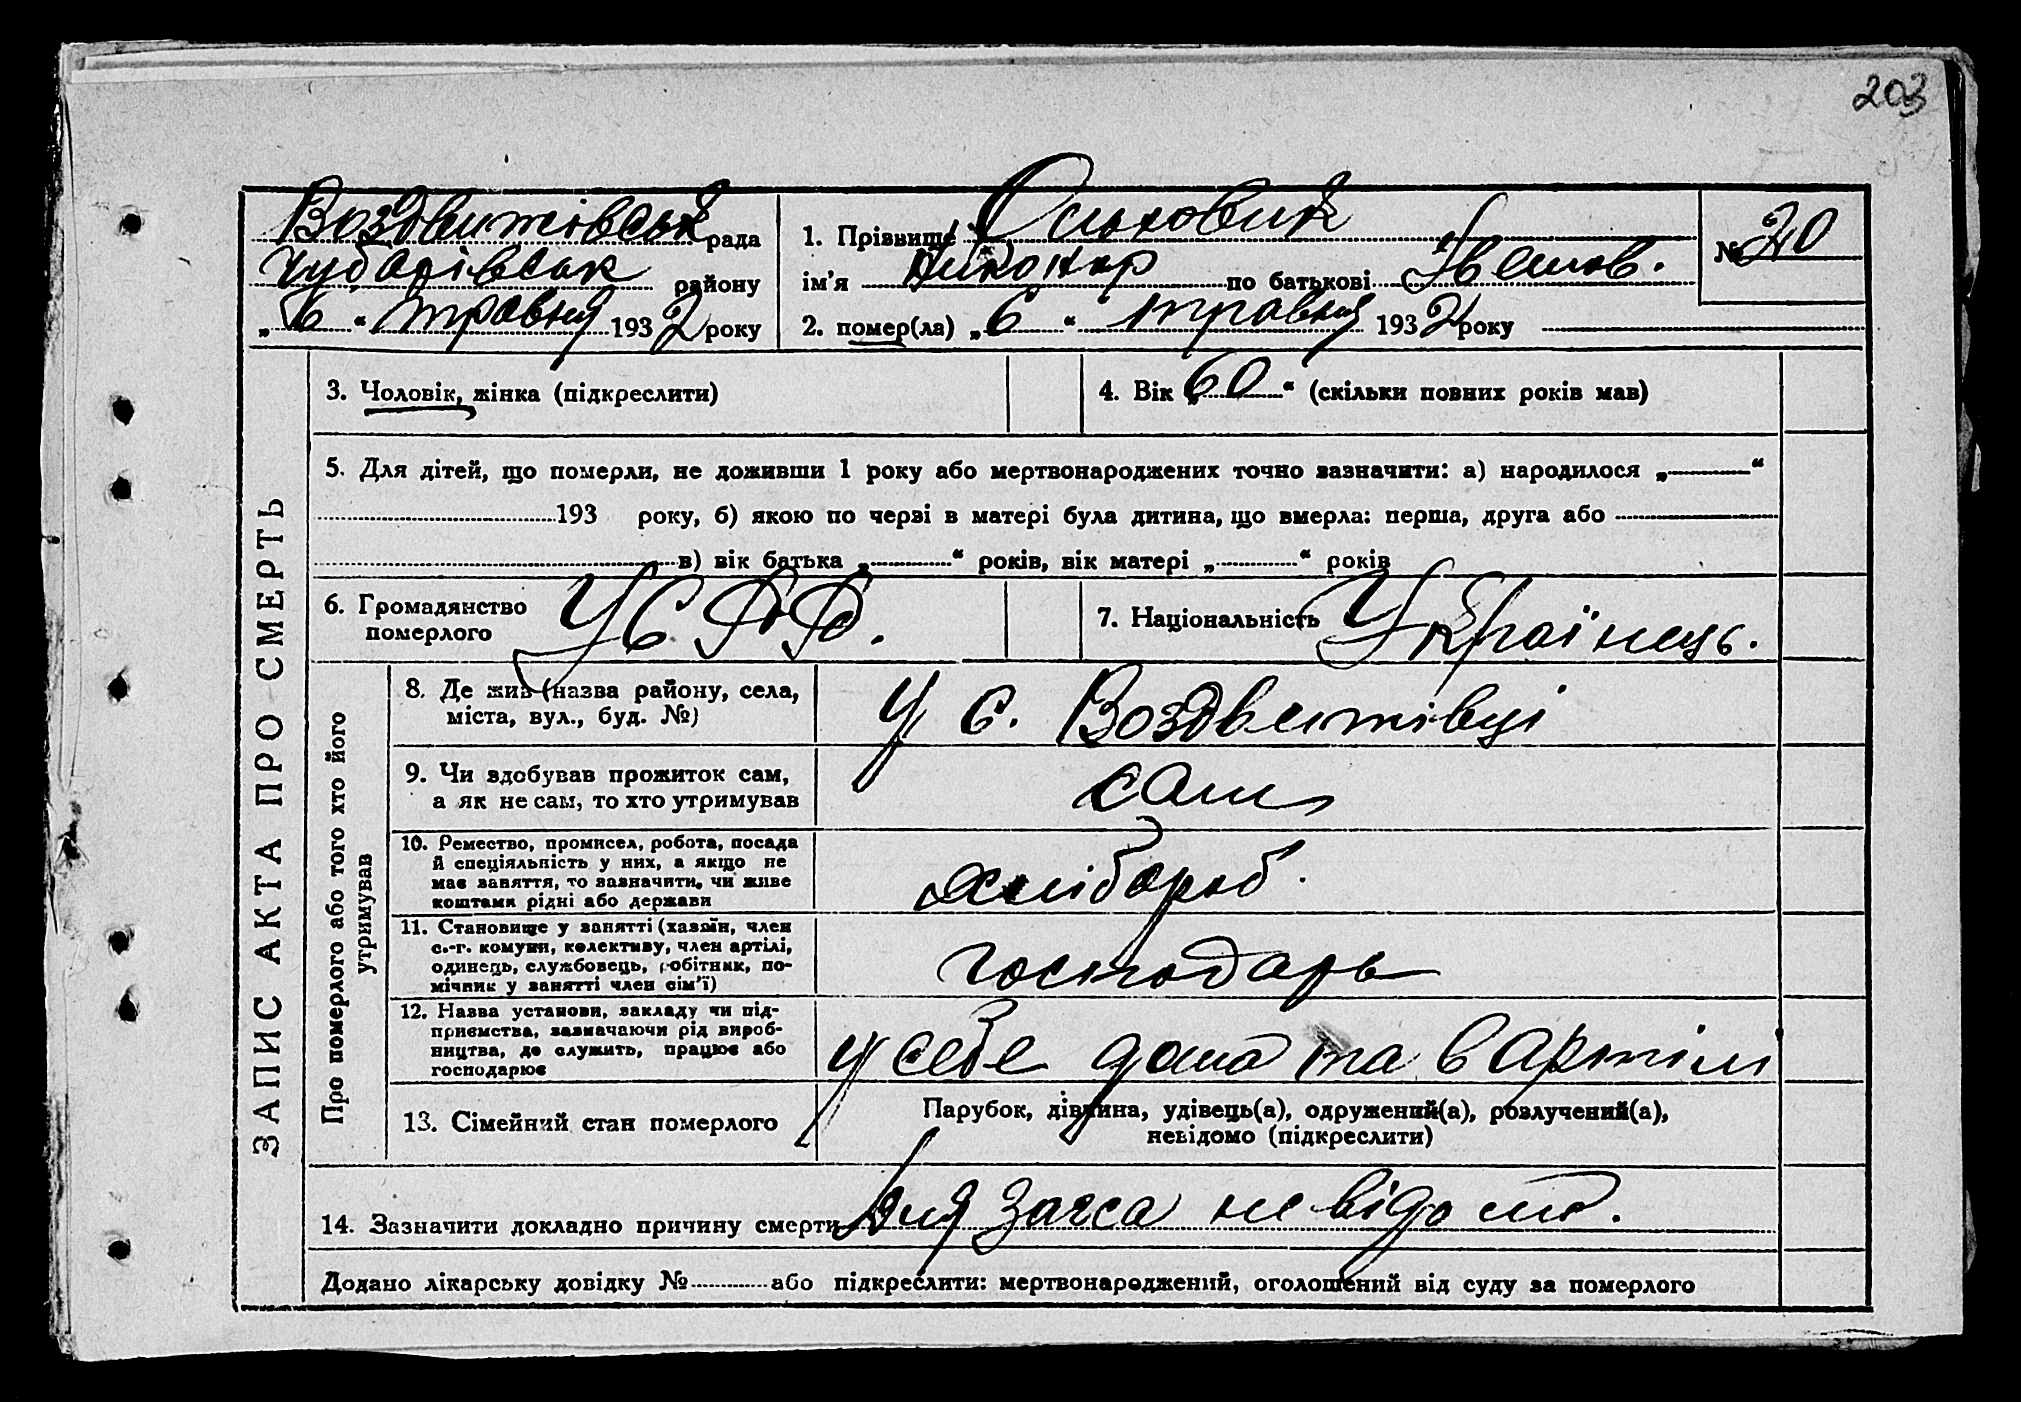 203
Воздвитівськ рада
Чубарівськ району
„6“ травня 1932 року
1. Прізвище Ольховик
ім’я Никонор по батькові Іванов.
2. помер(ла) „6“ травня 1932 року
№ 20
ЗАПИС АКТА ПРО СМЕРТЬ
3. Чоловік, жінка (підкреслити)
4. Вік „60“ (скільки повних років мав)
5. Для дітей, що померли, не доживши 1 року або мертвонароджених точно зазначити: а) народилося „ “
193 року, б) якою по черзі в матері була дитина, що вмерла: перша, друга або
в) вік батька „ “ років, вік матері „ “ років
6. Громадянство
померлого
УСРР.
7. Національність Українець.
Про померлого або того хто його
утримував
8. Де жив (назва району, села,
міста, вул., буд. №)
У с. Воздвитівці
9. Чи здобував прожиток сам,
а як не сам, то хто утримував
сам
10. Ремество, промисел, робота, посада
й спеціяльність у них, а якщо не
має заняття, то зазначити, чи живе
коштами рідні або держави
хлібороб.
11. Становище у занятті (хазяїн, член
с.-г. комуни, колективу, член артілі,
одинець, службовець, робітник, по-
мічник у занятті член сім’ї)
господарь
12. Назва установи, закладу чи під-
приємства, зазначаючи рід вироб-
ництва, де служить, працює або
господарює
у себе дома та в Артілі
13. Сімейний стан померлого
Парубок, дівчина, удівець(а), одружений(а), розлучений(а),
невідомо (підкреслити)
14. Зазначити докладно причину смерти Для Загса невідомо.
Додано лікарську довідку № або підкреслити: мертвонароджений, оголошений від суду за померлого